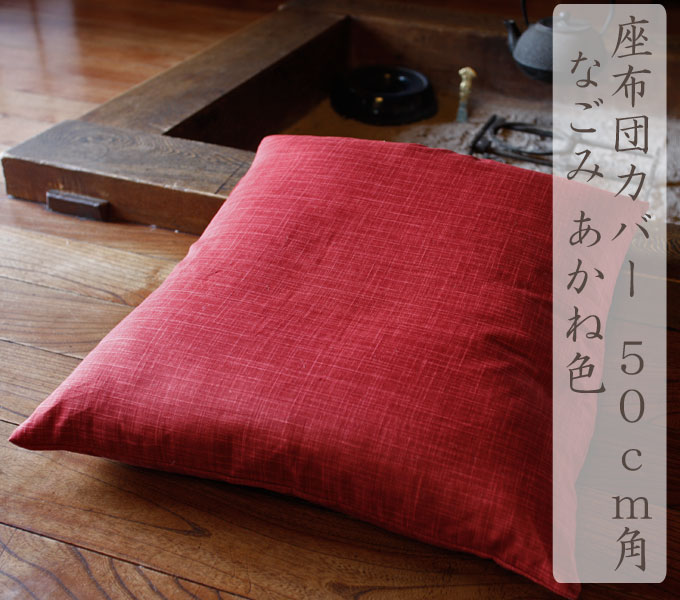 座布団カバー 50cm角
なごみ あかね色